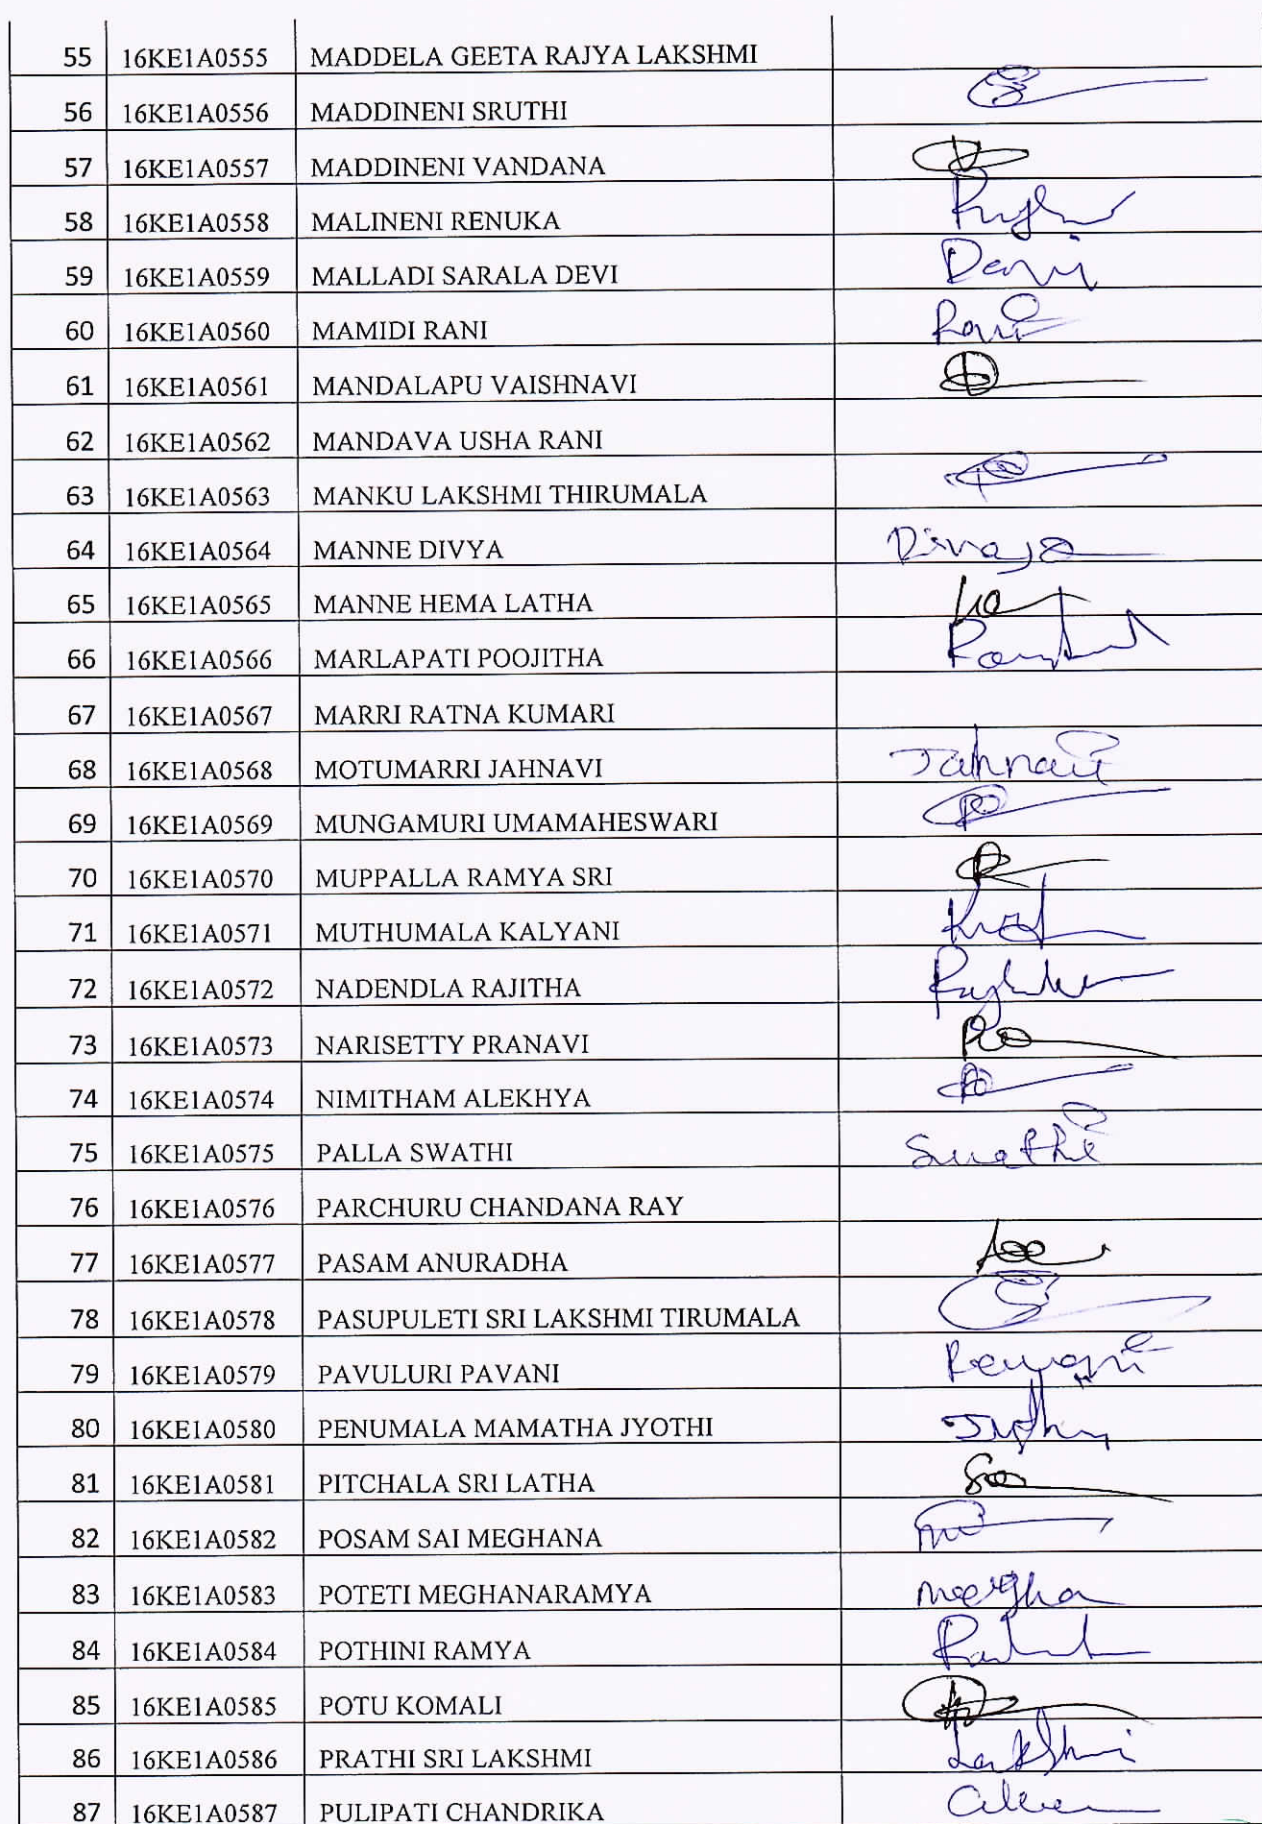 55 16KE1A0555 MADDELA GEETA RAJYA LAKSHMI
56 16KE1A0556 MADDINENI SRUTHI
57 16KE1A0557 MADDINENI VANDANA
58 16KE1A0558 MALINENI RENUKA
59 16KE1A0559 MALLADI SARALA DEVI Devi
60 16KE1A0560 MAMIDI RANI Rani
61 16KE1A0561 MANDALAPU VAISHNAVI
62 16KE1A0562 MANDAVA USHA RANI
63 16KE1A0563 MANKU LAKSHMI THIRUMALA
64 16KE1A0564 MANNE DIVYA
65 16KE1A0565 MANNE HEMA LATHA
66 16KE1A0566 MARLAPATI POOJITHA
67 16KE1A0567 MARRI RATNA KUMARI
68 16KE1A0568 MOTUMARRI JAHNAVI Jahnavi
69 16KE1A0569 MUNGAMURI UMAMAHESWARI
70 16KE1A0570 MUPPALLA RAMYA SRI
71 16KE1A0571 MUTHUMALA KALYANI
72 16KE1A0572 NADENDLA RAJITHA
73 16KE1A0573 NARISETTY PRANAVI
74 16KE1A0574 NIMITHAM ALEKHYA
75 16KE1A0575 PALLA SWATHI Swathi
76 16KE1A0576 PARCHURU CHANDANA RAY
77 16KE1A0577 PASAM ANURADHA
78 16KE1A0578 PASUPULETI SRI LAKSHMI TIRUMALA
79 16KE1A0579 PAVULURI PAVANI
80 16KE1A0580 PENUMALA MAMATHA JYOTHI
81 16KE1A0581 PITCHALA SRI LATHA
82 16KE1A0582 POSAM SAI MEGHANA
83 16KE1A0583 POTETI MEGHANARAMYA Megha
84 16KE1A0584 POTHINI RAMYA
85 16KE1A0585 POTU KOMALI
86 16KE1A0586 PRATHI SRI LAKSHMI Lakshmi
87 16KE1A0587 PULIPATI CHANDRIKA